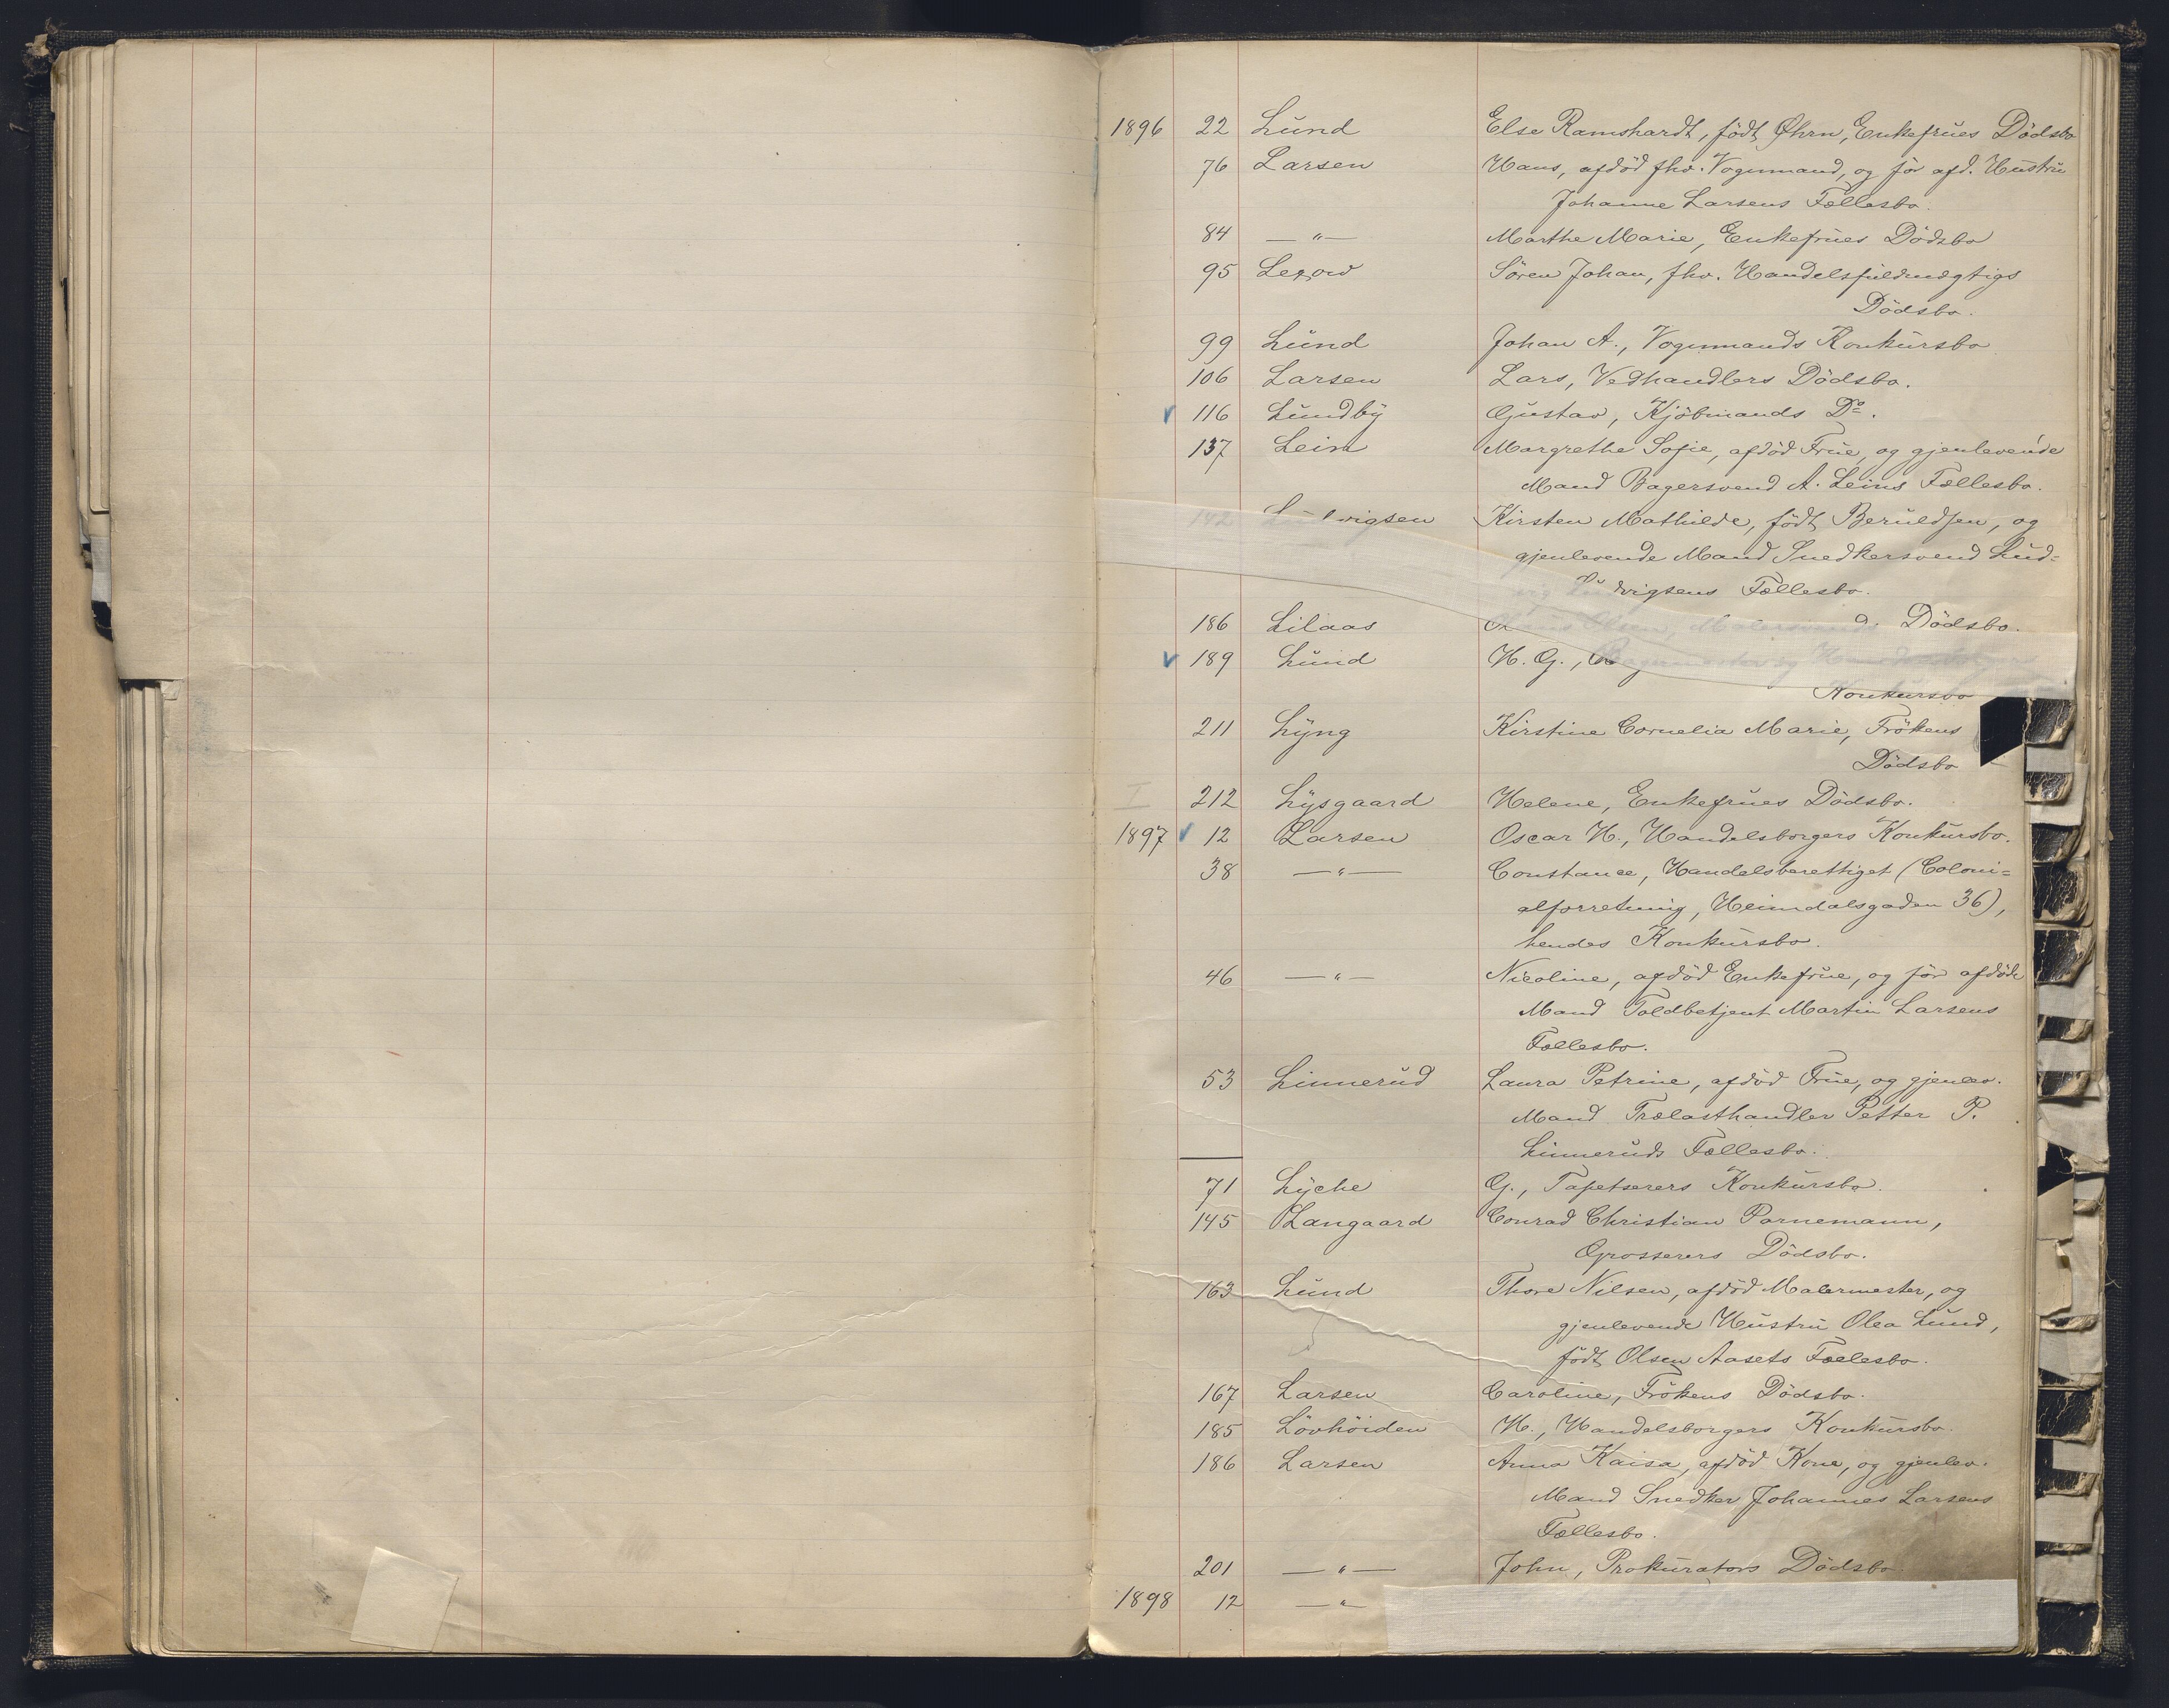 1896 22 Lund Else Ramshardt, födt Öhrn, Enkefrues Dödsbo
76 Larsen Hans, afdöd fhv. Vognmand, og för afd. Hustru
Johanne Larsens Fællesbo.
84 —"— Marthe Marie, Enkefrues Dödsbo
95 Sören Johan, fhv. Handelsfuldmægtigs
Dödsbo.
99 Lund Johan A., Vognmands Konkursbo
106 Larsen Lars, Vedhandlers Dödsbo.
116 Lundby Gustav, Kjöbmands Do.
137 Leim Margrethe Sofie, afdöd Frue, og gjenlevende
Mand Bagersvend A. Leims Fællesbo.
142 Ludvigsen Kirsten Mathilde, födt Beruldsen, og
gjenlevende Mand Snedkersvend Lud=
vig Ludvigsens Fællesbo.
186 Lilaas Dödsbo.
189 Lund H. G., Bagermester og
Konkursbo
211 Lyng Kirstine Cornelia Marie, Frökens
Dödsbo
I 212 Lysgaard Helene, Enkefrues Dödsbo.
1897 12 Larsen Oscar H., Handelsborgers Konkursbo.
38 —"— Constance, Handelsberettiget (Coloni=
alforretning, Heimdalsgaden 36),
hendes Konkursbo.
46 —"— Nicoline, afdöd Enkefrue, og för afdöde
Mand Toldbetjent Martin Larsens
Fællesbo.
53 Linnerud Laura Petrine, afdöd Frue, og gjenlev.
Mand Trælasthandler Petter P.
Linneruds Fællesbo.
71 Lyche G., Tapetserers Konkursbo.
145 Langaard Conrad Christian Parnemann,
Grosserers Dödsbo.
163 Lund Thore Nilsen, afdöd Malermester, og
gjenlevende Hustru Olea Lund,
födt Olsen Aasets Fællesbo.
167 Larsen Caroline, Frökens Dödsbo.
185 Lövhöiden H., Handelsborgers Konkursbo.
186 Larsen Anna Kaisa, afdöd Kone, og gjenlev.
Mand Snedker Johannes Larsens
Fællesbo.
201 —"— John, Prokurators Dödsbo
1898 12 —"—